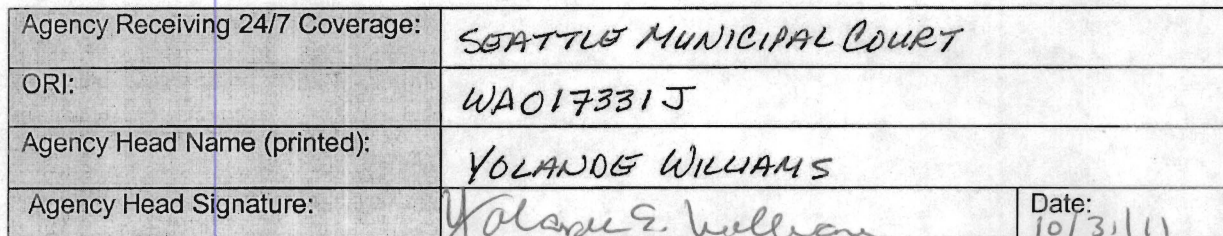 Agency Receiving 24/7 Coverage: SEATTLE MUNICIPAL COURT
ORI: WA017331J
Agency Head Name (printed): YOLANDE WILLIAMS
Agency Head Signature: Yolande E. Williams Date: 10/31/11